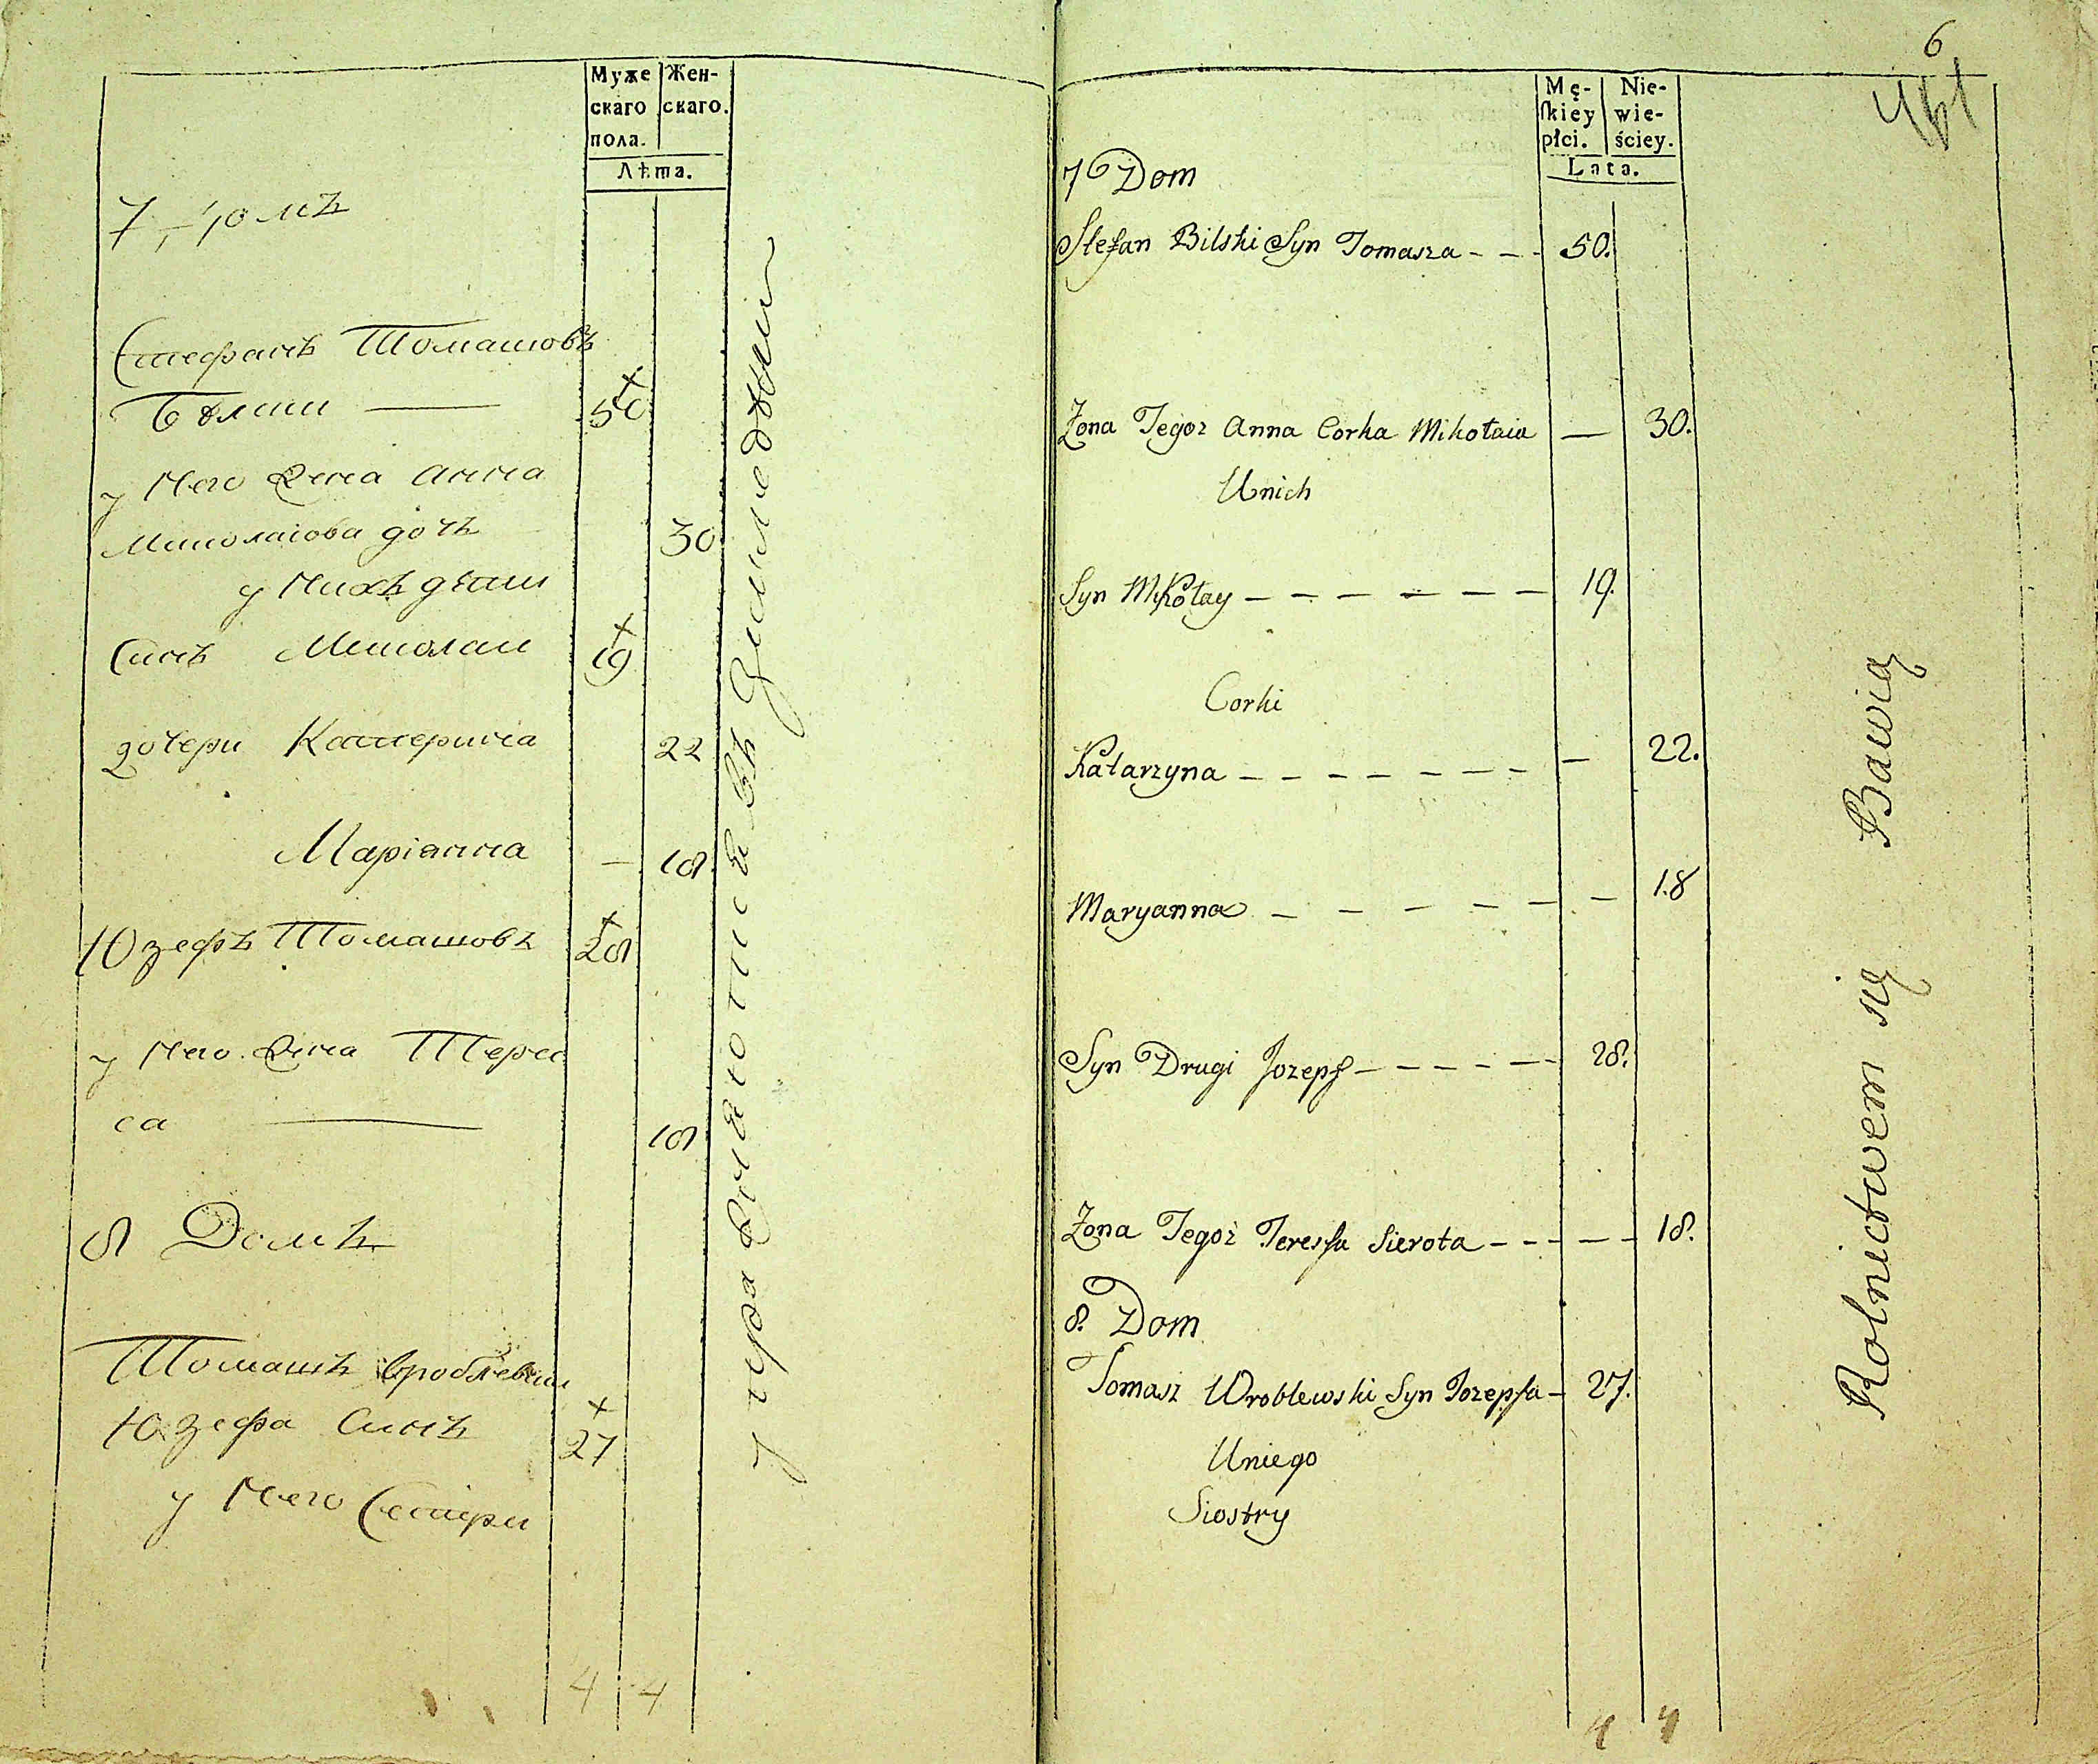 Муже
скаго
пола.
Жен-
скаго.
Лѣта.
7 домъ
Стефанъ Томашовъ
Бѣлски — 50
у Него Жена Анна
Миколаіова дочъ 30
у Нихъ дѣти
Синъ Миколаи 19
дочери Катерина 22
Маріанна — 18
Юзефъ Томашовъ 28
у Него Жена Терес
са — 18
8 Домъ
Томашъ Вроблевски
Юзефа Синъ 27
у Него Сестри
4 4
упражняются въ
6
Mę-
skiey
płci.
Nie-
wie-
ściey.
Lata.
7 Dom
Stefan Bilski Syn Tomasza - - - 50.
Zona Tegoz Anna Corka Mikołaia — 30.
Unich
Syn Mikołay — — — — — — — 19.
Corki
Katarzyna — — — — — — — — 22.
Maryanna — — — — — — 18
Syn Drugi Jozeph — — — — — 28.
Zona Tegoż Teressa Sierota — — — — — 18.
8. Dom
Tomasz Wroblewski Syn Jozepha — 27.
Uniego
Siostry
4 4
Rolnictwem się Bawią